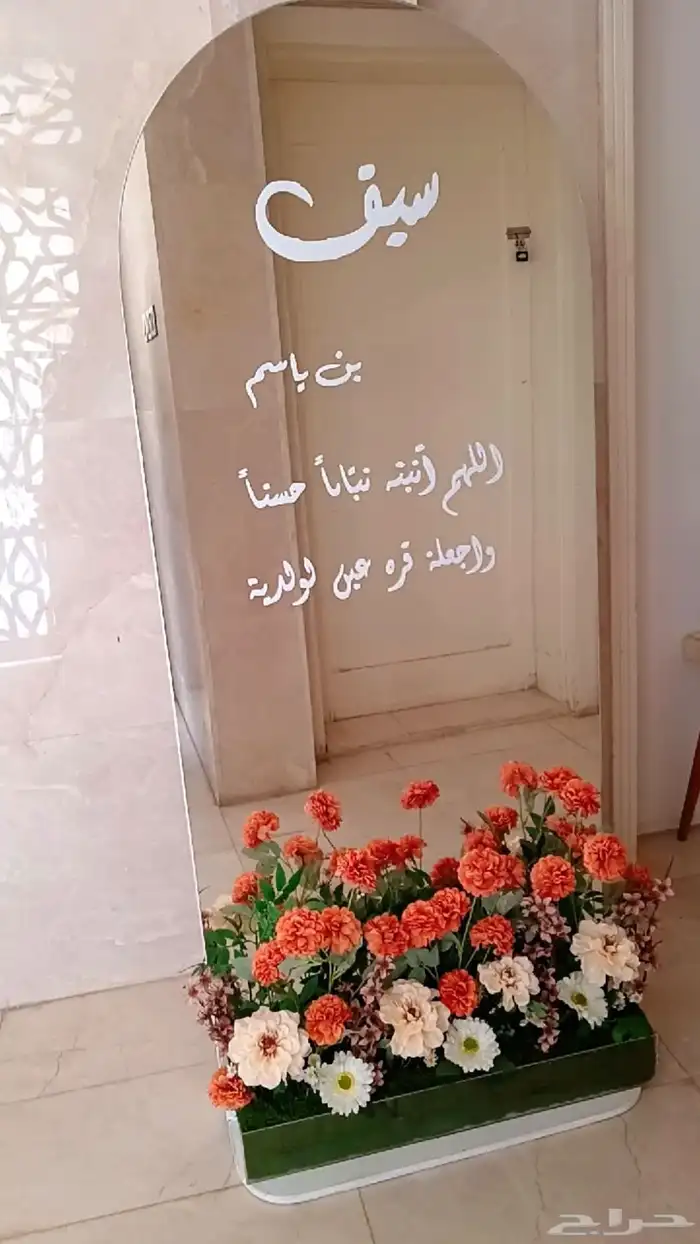 سيف
بن ياسم
اللهم أنبته نباتاً حسناً
واجعلة قره عين لولدية
حراج